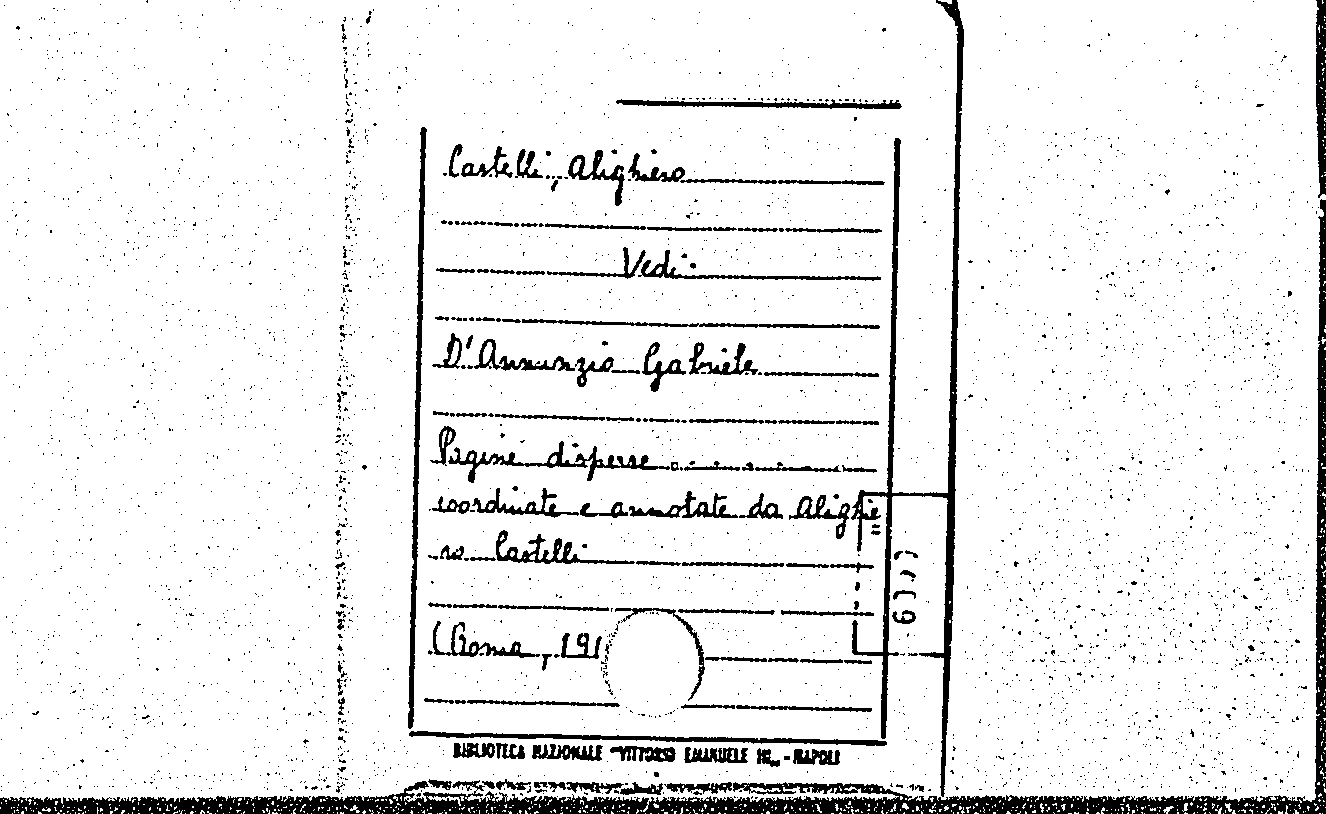 Castelli, Alighiero
Vedi:
D'Annunzio Gabriele
Pagine disperse . . . . . .
coordinate e annotate da Alighie=
ro Castelli
(Roma, 191
BIBLIOTECA NAZIONALE "VITTORIO EMANUELE III„ - NAPOLI